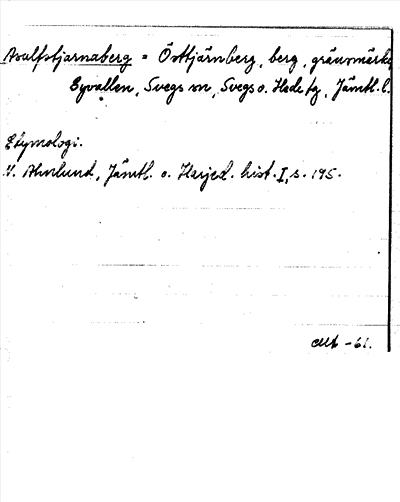 Asulfstjarnaberg = Östtjärnberg, berg, gränsmärke
Eyvallen, Svegs sn, Svegs o. Hede tg, Jämtl. l.
Etymologi.
N. Ahnlund, Jämtl. o. Härjed. hist. I, s. 195.
-61.